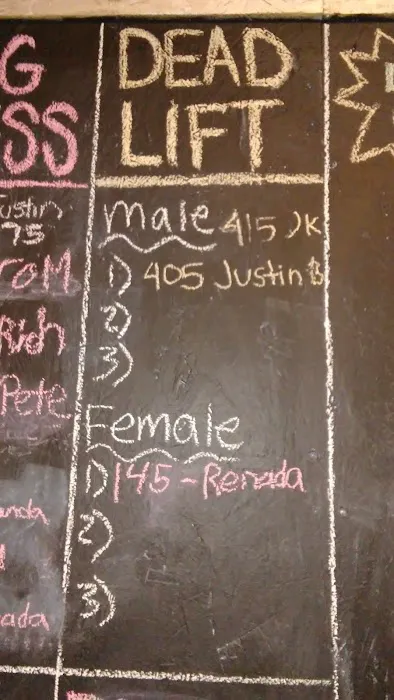 G
SS
ustin
75
rom
Rich
Pete
anda
ada
DEAD
LIFT
male 415 JK
1) 405 Justin B
2)
3)
Female
1) 145 - Renada
2)
3)